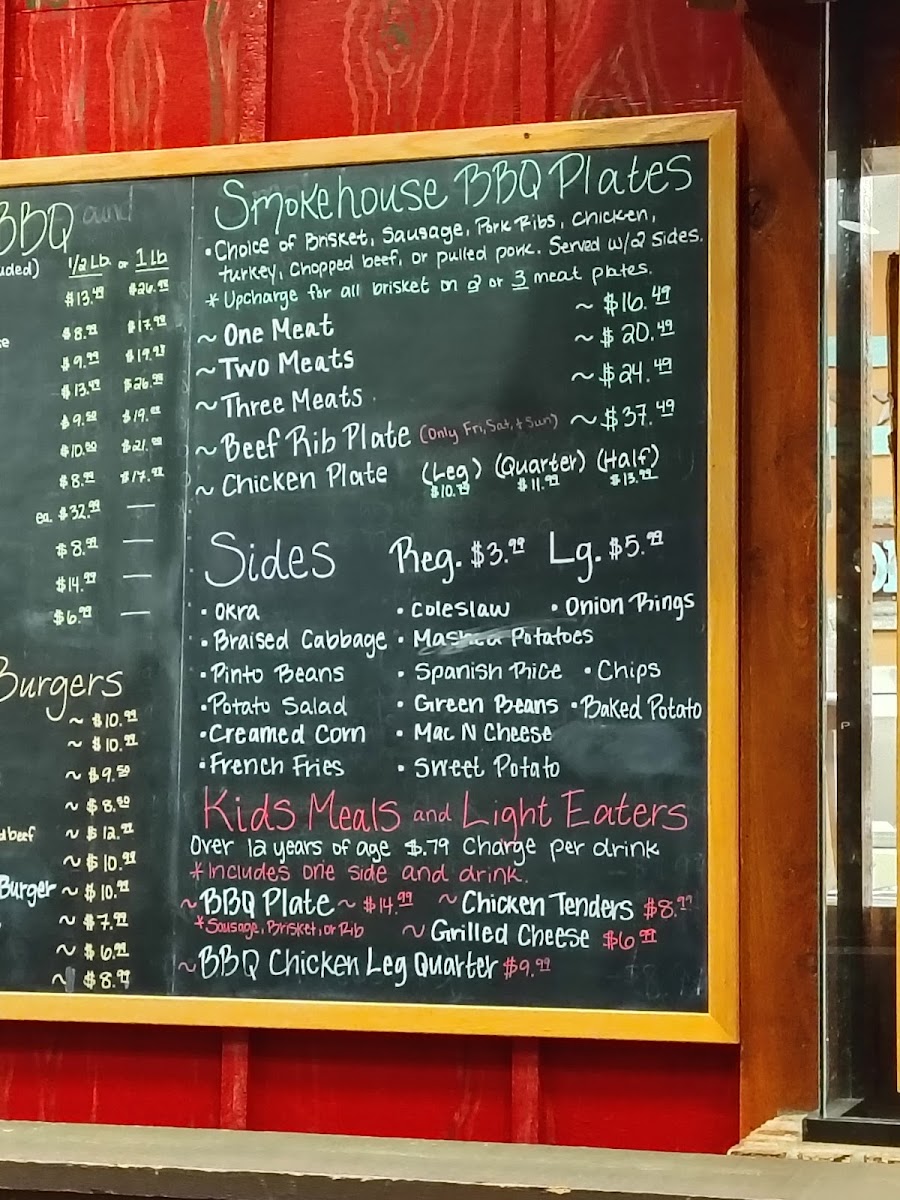 BBQ and
uded) 1/2 Lb. or 1 Lb
$13.49 $26.99
$8.99 $17.99
$9.99 $19.99
$13.49 $26.99
$9.50 $19.00
$10.50 $21.00
$8.99 $17.99
ea. $32.99 —
$8.99 —
$14.99 —
$6.99 —
Burgers
~ $10.99
~ $10.99
~ $9.50
~ $8.50
beef ~ $12.99
~ $10.99
Burger ~ $10.99
~ $7.99
~ $6.99
~ $8.99
Smokehouse BBQ Plates
• Choice of Brisket, Sausage, Pork Ribs, Chicken,
turkey, Chopped beef, or pulled pork. Served w/2 sides.
* Upcharge for all brisket on 2 or 3 meat plates.
~ One Meat ~ $16.49
~ Two Meats ~ $20.49
~ Three Meats ~ $24.49
~ Beef Rib Plate (Only Fri, Sat, + Sun) ~ $37.49
~ Chicken Plate (Leg) (Quarter) (Half)
$11.99 $13.99
Sides Reg. $3.99 Lg. $5.99
• Okra • Coleslaw • Onion Rings
• Braised Cabbage • Mashed Potatoes
• Pinto Beans • Spanish Rice • Chips
• Potato Salad • Green Beans • Baked Potato
• Creamed Corn • Mac N Cheese
• French Fries • Sweet Potato
Kids Meals and Light Eaters
Over 12 years of age $.79 Charge per drink
* Includes one side and drink.
~ BBQ Plate ~ $14.99 ~ Chicken Tenders $8.99
* Sausage, Brisket, or Rib ~ Grilled Cheese $6.99
~ BBQ Chicken Leg Quarter $9.99